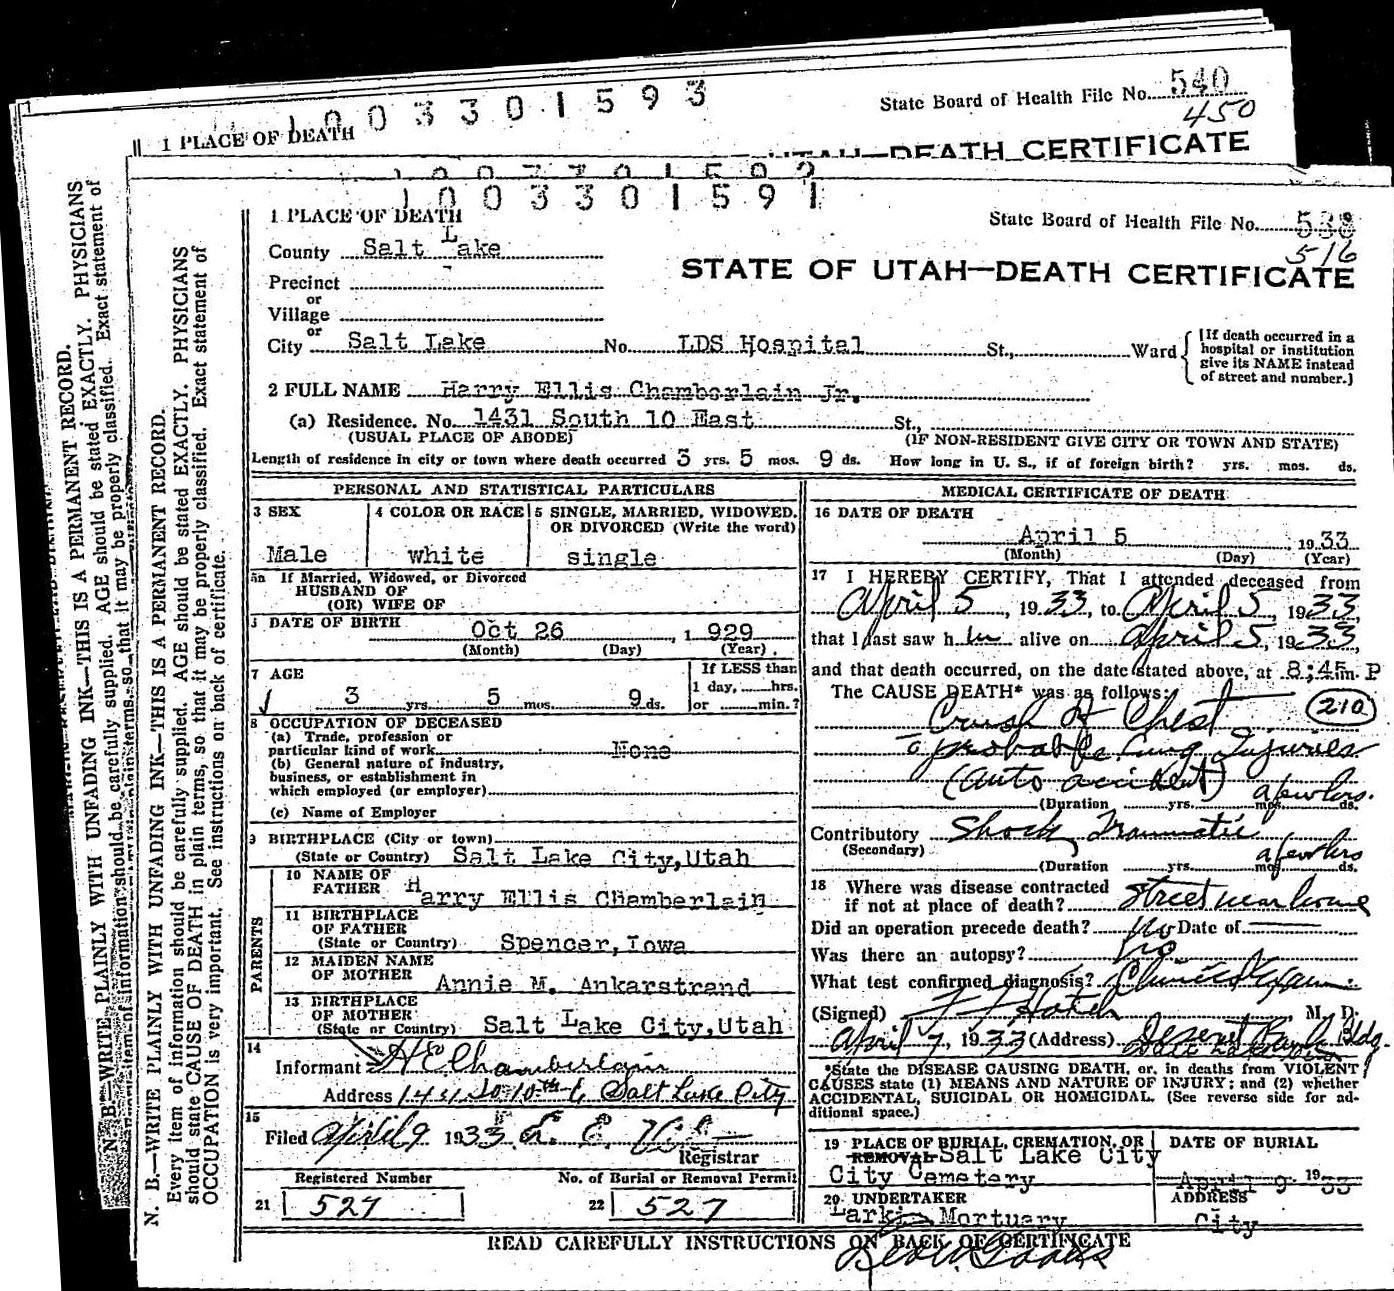 1003301593
State Board of Health File No. 540
450
1 PLACE OF DEATH
UTAH—DEATH CERTIFICATE
1003301591
1 PLACE OF DEATH
State Board of Health File No.
516
County Salt Lake
STATE OF UTAH—DEATH CERTIFICATE
Precinct
or
Village
or
City Salt Lake No. LDS Hospital St., Ward
[If death occurred in a
hospital or institution
give its NAME instead
of street and number.]
2 FULL NAME Harry Ellis Chamberlain Jr.
(a) Residence. No. 1431 South 10 East St.,
(USUAL PLACE OF ABODE) (IF NON-RESIDENT GIVE CITY OR TOWN AND STATE)
Length of residence in city or town where death occurred 3 yrs. 5 mos. 9 ds. How long in U. S., if of foreign birth? yrs. mos. ds.
PERSONAL AND STATISTICAL PARTICULARS
3 SEX
Male
4 COLOR OR RACE
white
5 SINGLE, MARRIED, WIDOWED,
OR DIVORCED (Write the word)
single
5a If Married, Widowed, or Divorced
HUSBAND OF
(OR) WIFE OF
DATE OF BIRTH
Oct 26, 1929
(Month) (Day) (Year)
7 AGE
3 yrs. 5 mos. 9 ds.
If LESS than
1 day, hrs.
or min.?
8 OCCUPATION OF DECEASED
(a) Trade, profession or
particular kind of work None
(b) General nature of industry,
business, or establishment in
which employed (or employer)
(c) Name of Employer
9 BIRTHPLACE (City or town)
(State or Country) Salt Lake City, Utah
PARENTS
10 NAME OF
FATHER Harry Ellis Chamberlain
11 BIRTHPLACE
OF FATHER
(State or Country) Spencer, Iowa
12 MAIDEN NAME
OF MOTHER Annie M. Ankarstrand
13 BIRTHPLACE
OF MOTHER
(State or Country) Salt Lake City, Utah
14
Informant H E Chamberlain
Address So 10th E Salt Lake City
15
Filed April 9 1933
Registrar
Registered Number No. of Burial or Removal Permit
21 527 22 527
MEDICAL CERTIFICATE OF DEATH
16 DATE OF DEATH
April 5 1933
(Month) (Day) (Year)
17 I HEREBY CERTIFY, That I attended deceased from
April 5, 1933, to April 5, 1933,
that I last saw him alive on April 5, 1933,
and that death occurred, on the date stated above, at 8:45m. P
The CAUSE DEATH* was as follows:
Crush of Chest 210
probable lung Injuries
(auto accident) a few hrs.
(Duration yrs. mos. ds.
Contributory Shock, Traumatic
(Secondary) a few hrs
(Duration yrs. mos. ds.
18 Where was disease contracted
if not at place of death? Street near home
Did an operation precede death? No Date of
Was there an autopsy? no
What test confirmed diagnosis? Clinical Exam
(Signed) Hatch M. D.
April 7, 1933 (Address) Deseret Bank Bldg.
Salt Lake City
*State the DISEASE CAUSING DEATH, or, in deaths from VIOLENT
CAUSES state (1) MEANS AND NATURE OF INJURY; and (2) whether
ACCIDENTAL, SUICIDAL OR HOMICIDAL. (See reverse side for ad-
ditional space.)
19 PLACE OF BURIAL, CREMATION, OR
REMOVAL Salt Lake City
City Cemetery
DATE OF BURIAL
April 9 1933
20 UNDERTAKER
Larkin Mortuary
ADDRESS
City
READ CAREFULLY INSTRUCTIONS ON BACK OF CERTIFICATE
N. B.—WRITE PLAINLY WITH UNFADING INK—THIS IS A PERMANENT RECORD.
Every item of information should be carefully supplied. AGE should be stated EXACTLY. PHYSICIANS
should state CAUSE OF DEATH in plain terms, so that it may be properly classified. Exact statement of
OCCUPATION is very important. See instructions on back of certificate.
N. B.—WRITE PLAINLY WITH UNFADING INK—THIS IS A PERMANENT RECORD.
item of information should be carefully supplied. AGE should be stated EXACTLY. PHYSICIANS
so that it may be properly classified. Exact statement of